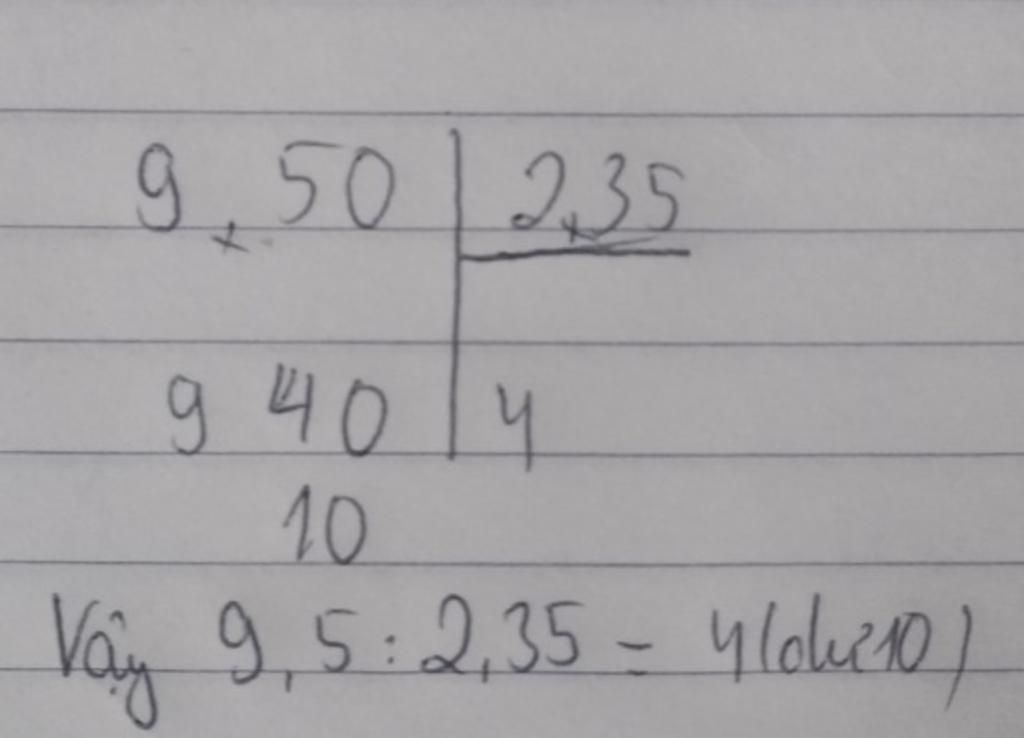 9,50 2,35
940 4
10
Vậy 9,5 : 2,35 = 4 (dư 10)